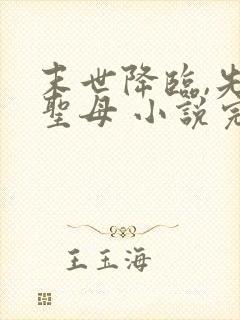 末世降臨,先
聖母 小說完
王玉海